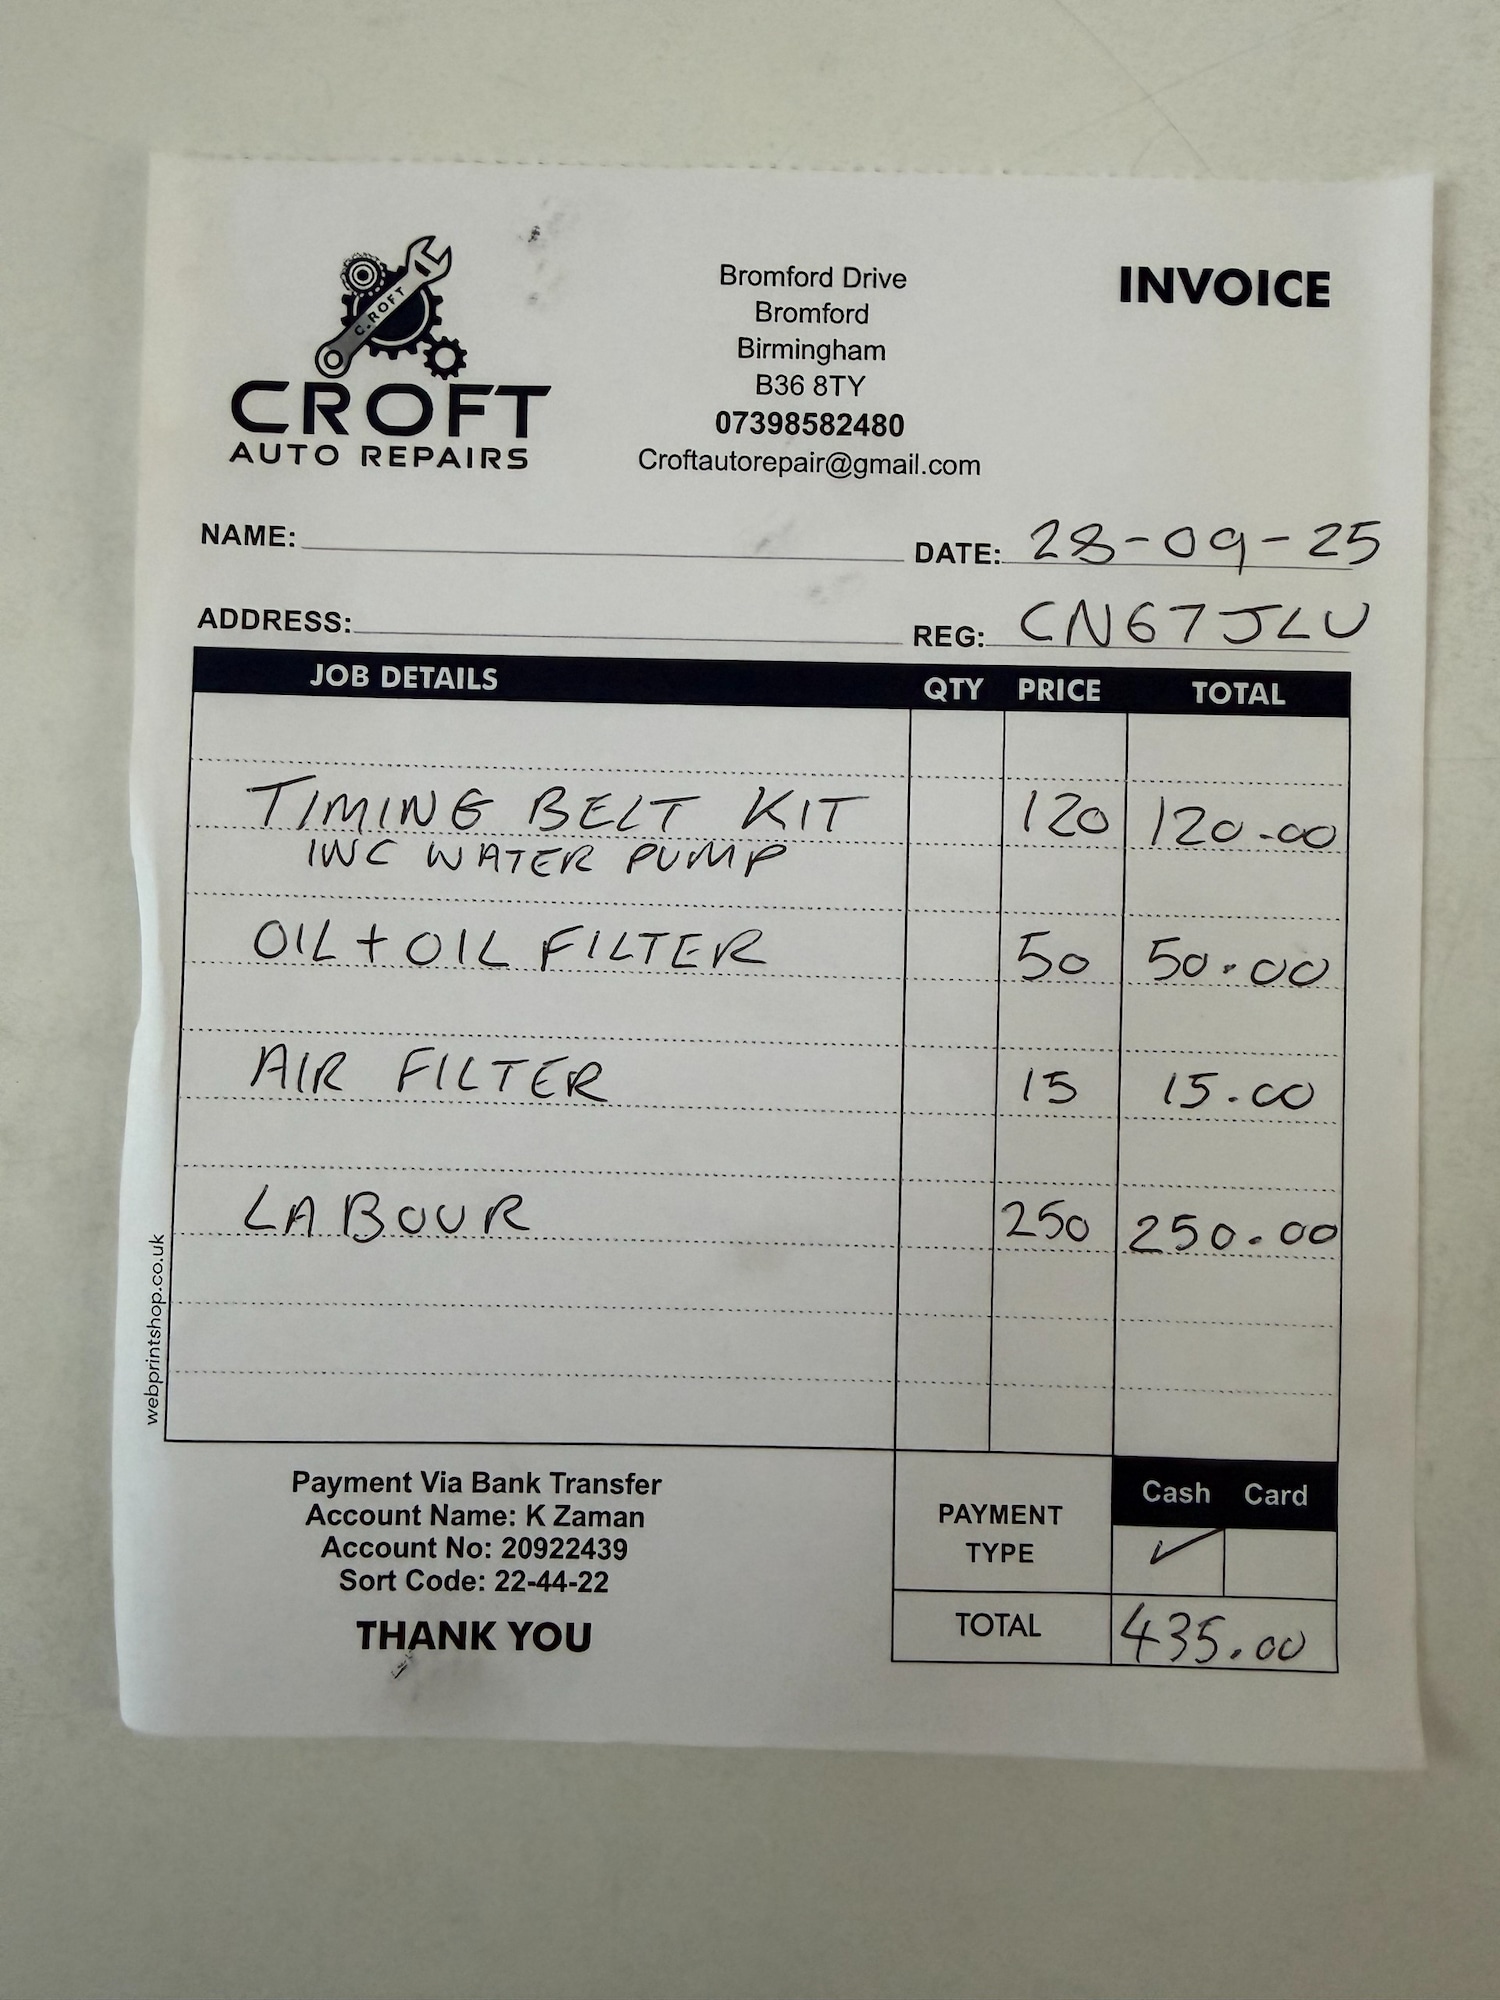 C.ROFT
CROFT
AUTO REPAIRS
Bromford Drive
Bromford
Birmingham
B36 8TY
07398582480
Croftautorepair@gmail.com
INVOICE
NAME:
DATE: 28-09-25
ADDRESS:
REG: CN67JLU
JOB DETAILS QTY PRICE TOTAL
TIMING BELT KIT 120 120.00
INC WATER PUMP
OIL + OIL FILTER 50 50.00
AIR FILTER 15 15.00
LABOUR 250 250.00
webprintshop.co.uk
Payment Via Bank Transfer
Account Name: K Zaman
Account No: 20922439
Sort Code: 22-44-22
THANK YOU
PAYMENT
TYPE
Cash Card
✓
TOTAL 435.00